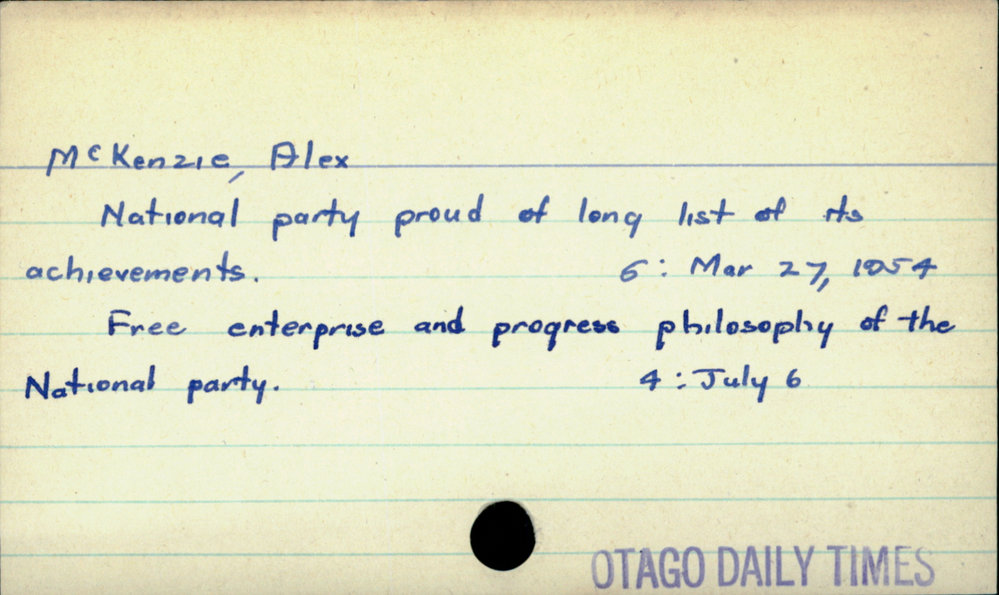 McKenzie, Alex
National party proud of long list of its
achievements. 6: Mar 27, 1954
Free enterprise and progress philosophy of the
National party. 4: July 6
OTAGO DAILY TIMES